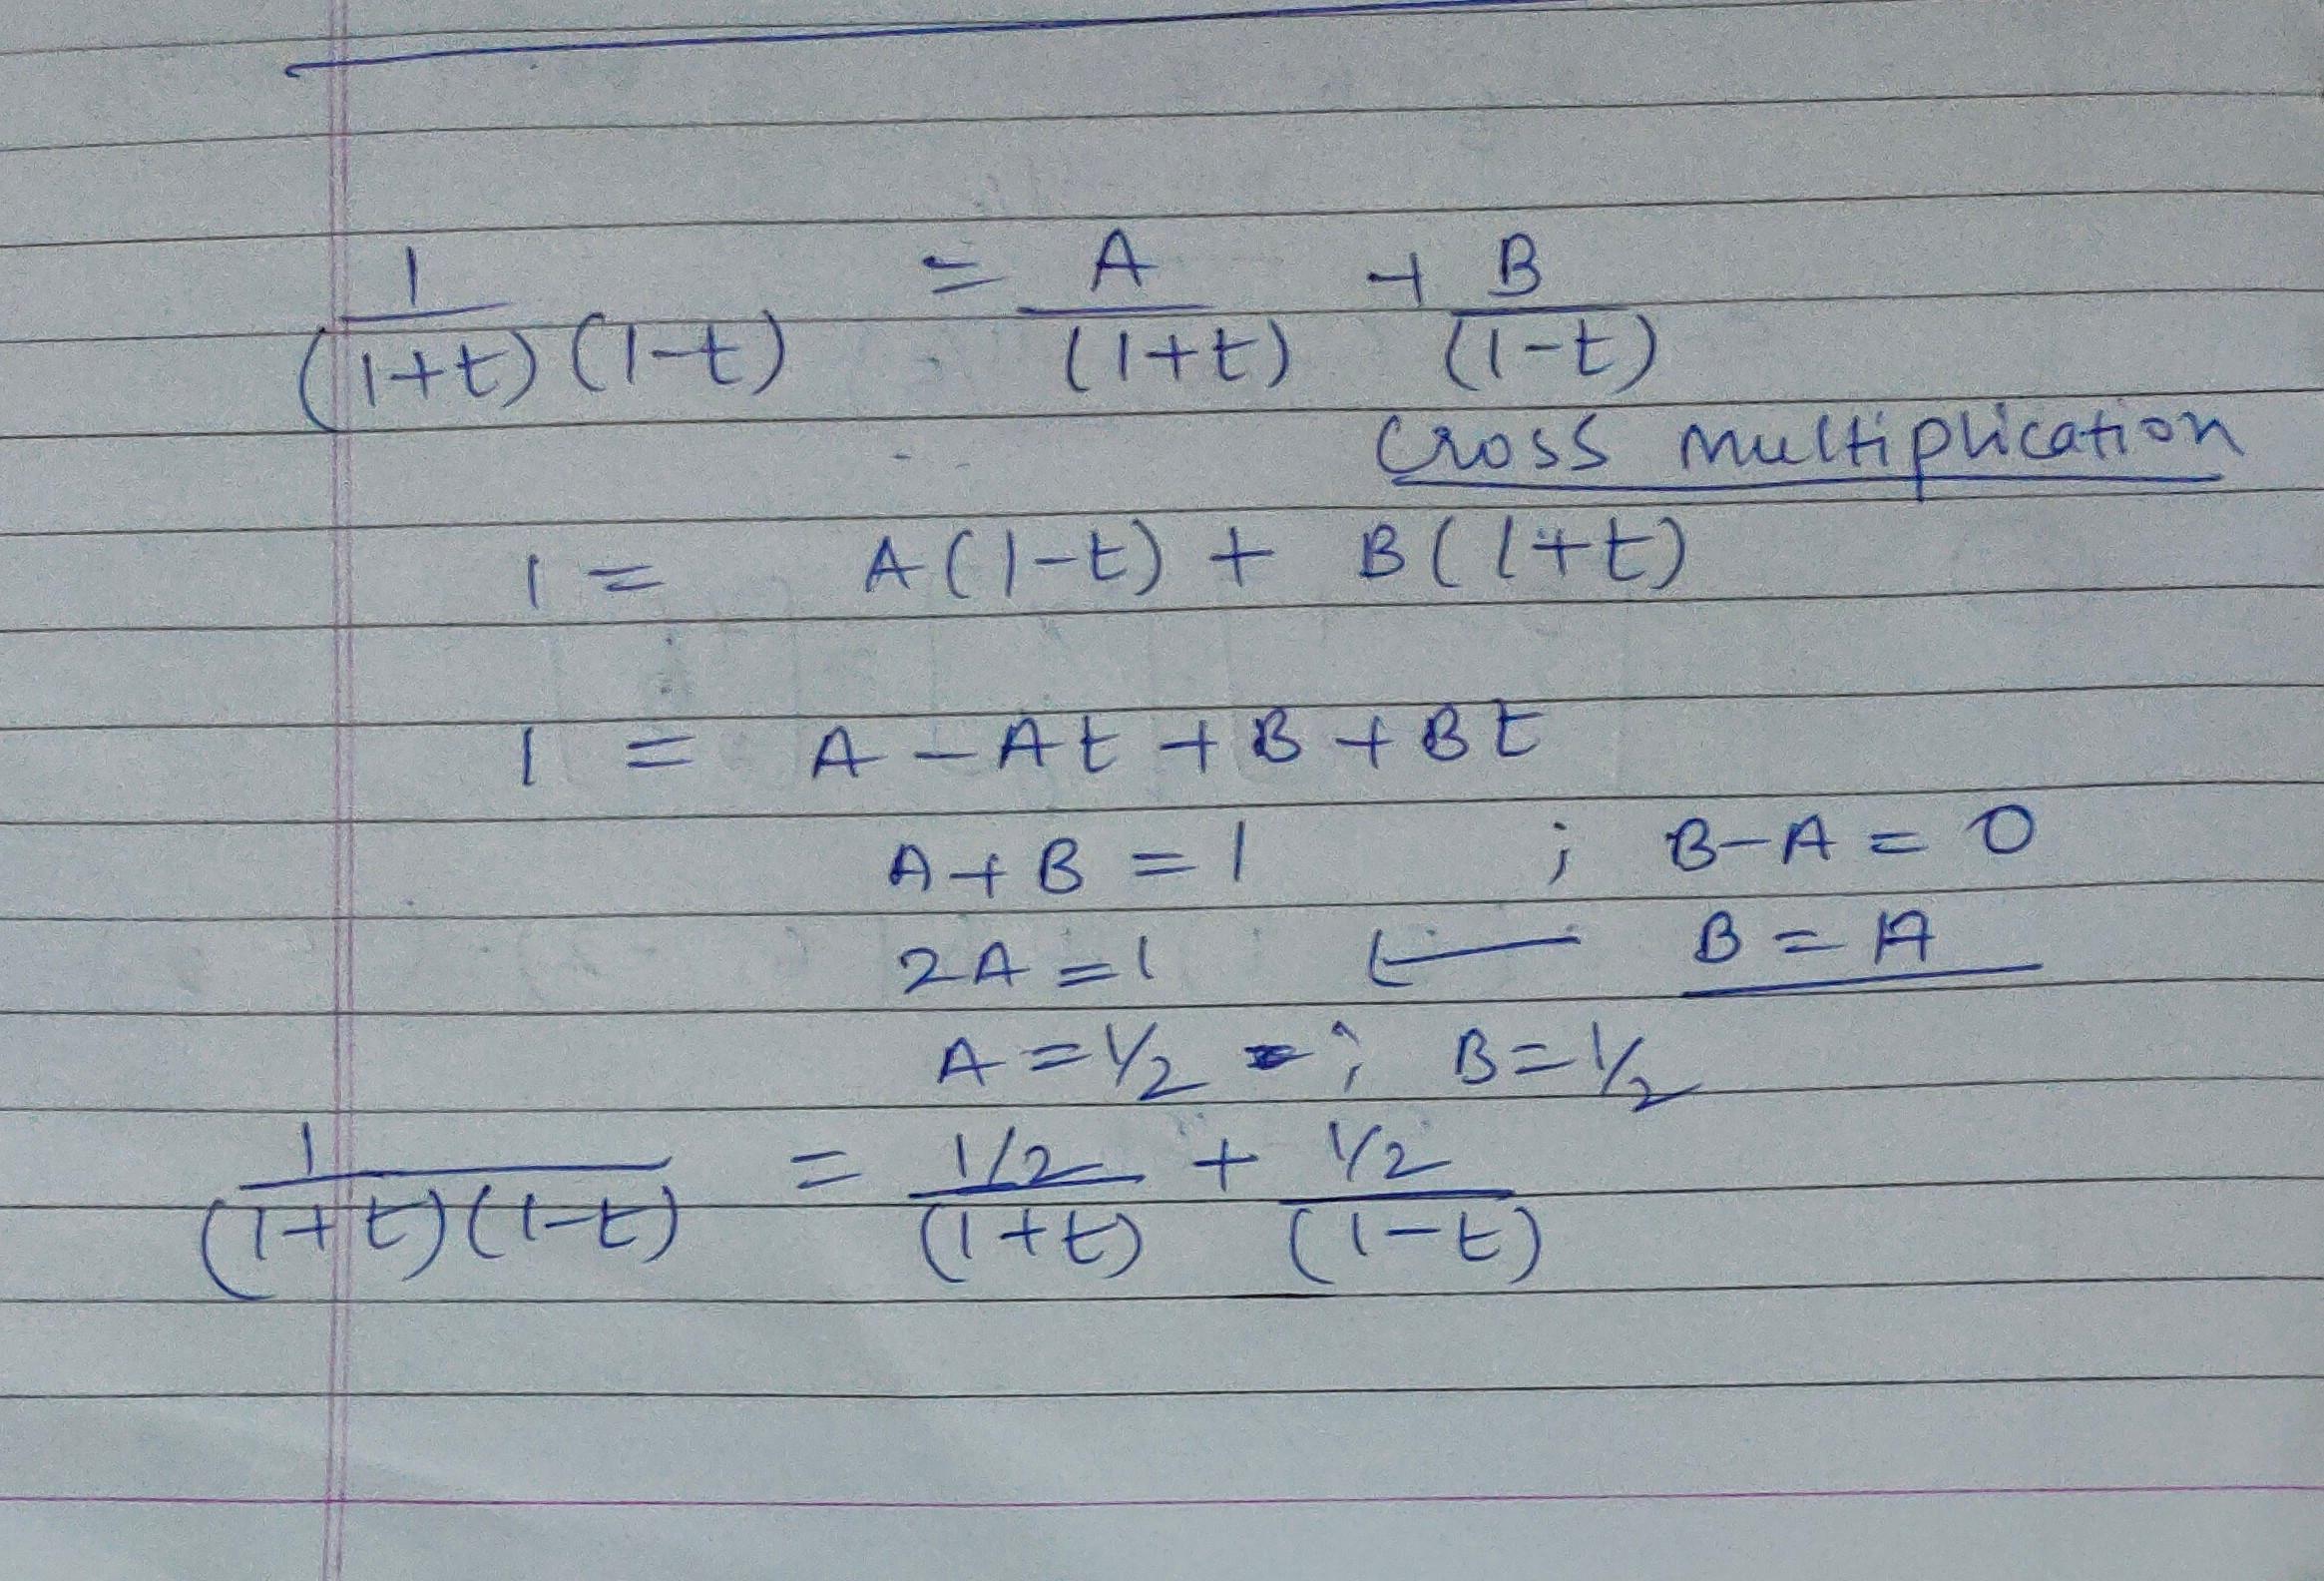 1/(1+t)(1-t) = A/(1+t) + B/(1-t)
Cross multiplication
1 = A(1-t) + B(1+t)
1 = A - At + B + Bt
A+B = 1 ; B-A = 0
2A = 1 ← B = A
A = 1/2 ; B = 1/2
1/(1+t)(1-t) = 1/2/(1+t) + 1/2/(1-t)